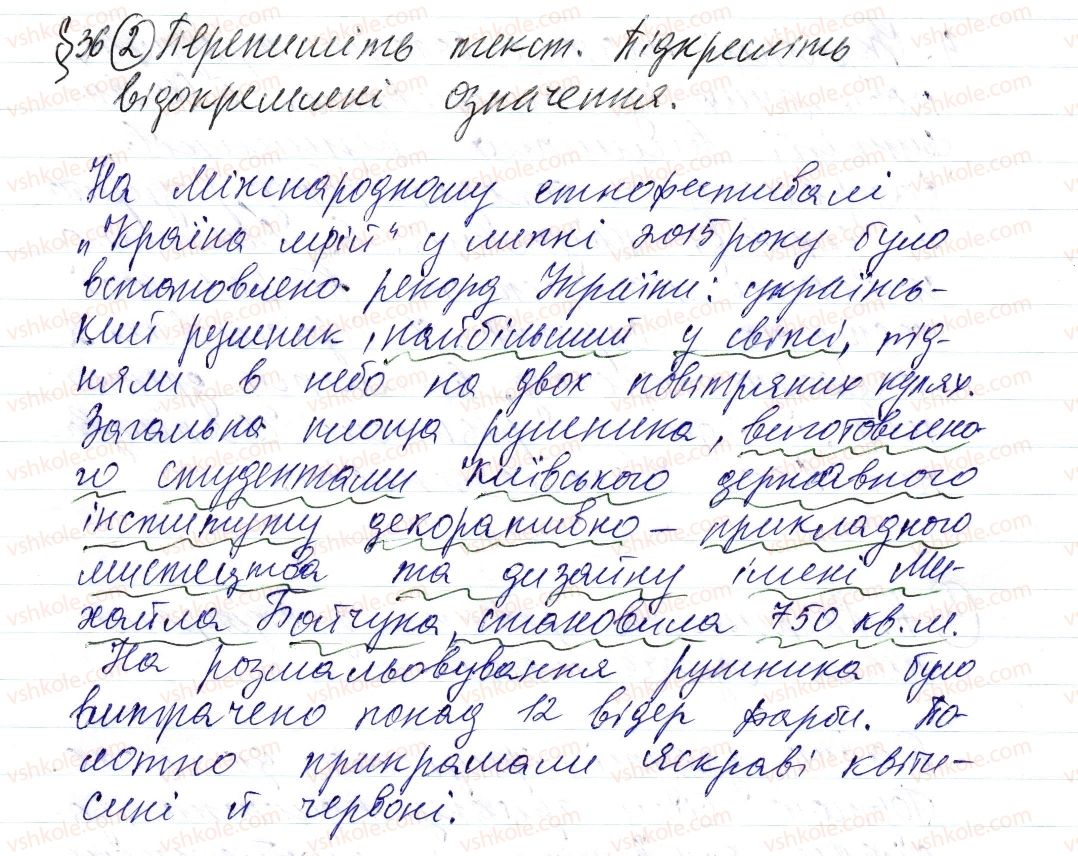 §36 2 Перепишіть текст. Підкресліть
відокремлені означення.
На міжнародному етнофестивалі
„Країна мрій“ у липні 2015 року було
встановлено рекорд України: українсь-
кий рушник, найбільший у світі, під-
няли в небо на двох повітряних кулях.
Загальна площа рушника, виготовлено
го студентами Київського державного
інституту декоративно – прикладного
мистецтва та дизайну імені Ми-
хайла Бойчука, становила 750 кв.м.
На розмальовування рушника було
витрачено понад 12 відер фарби. По-
лотно прикрашали яскраві квіти-
сині й червоні.